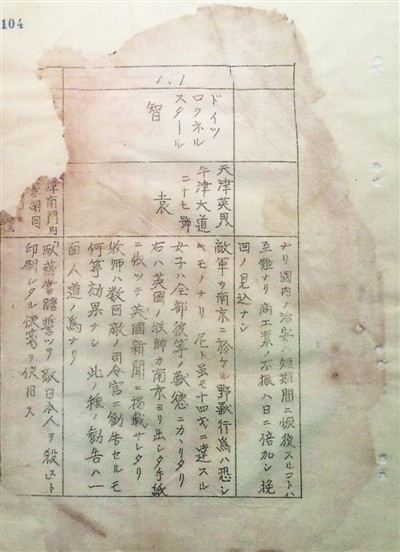 104
1.1
ドイツ
ロクネル
スタール
智
天津英界
牛津大道
二十七號
袁
ナリ國内ノ治安ハ短期間ニ恢復スルコトハ
至難ナリ商工業ノ不振ハ日ニ倍加シ挽
回ノ見込ナシ
敵軍ノ南京ニ於ケル野獸行為ハ恐シ
キモノナリ尼ト雖モ十四才ニ達スル
女子ハ全部彼等ノ獸慾ニカヽリタリ
右ハ英国ノ牧師カ南京ヨリ出シタ手紙
ニ依ツテ英國新聞ニ掲載サレタリ
牧師ハ数回敵ノ司令官ニ勧告セルモ
何等効果ナシ此ノ種ノ勧告ハ一
面人道ノ為ナリ
津南門内
胡同
臥薪嘗膽誓ツテ敵日本人ヲ殺スト
印刷シタル便箋ヲ使用ス